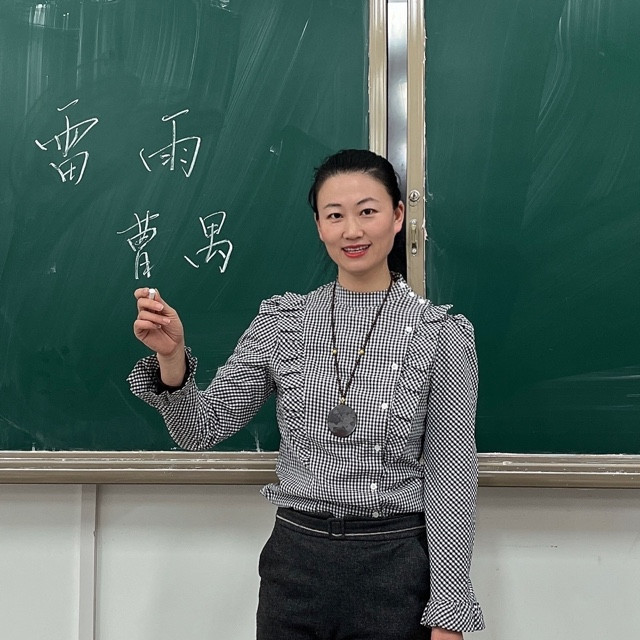 雷 雨
曹 禺